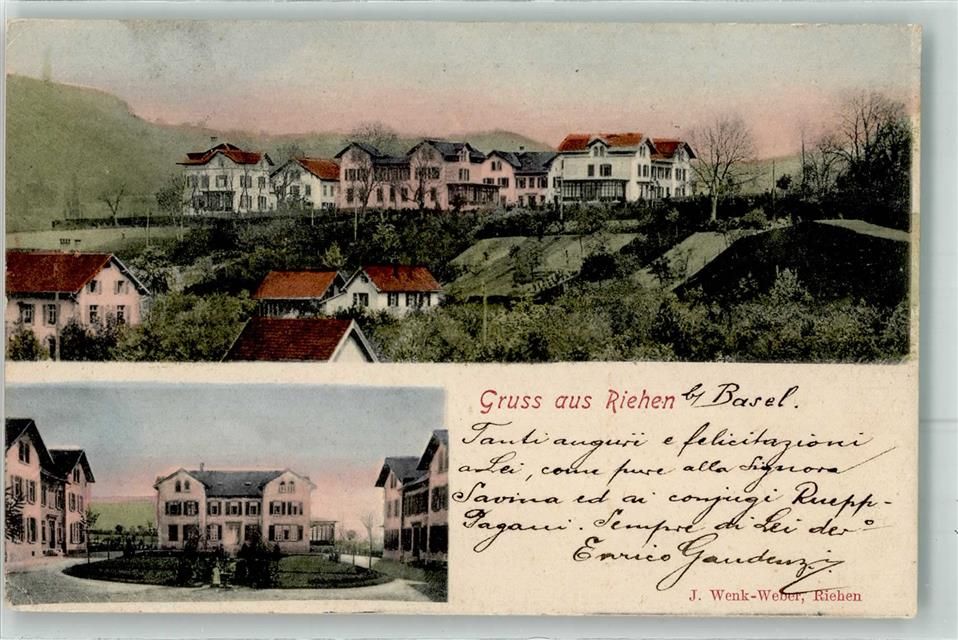 Gruss aus Riehen b/ Basel.
Tanti augurï e felicitazioni
a Lei, come pure alla Signora
Savina ed ai conjugi Ruepp-
Pagani. Sempre di Lei dev.º
Enrico Gaudenzi.
J. Wenk-Weber, Riehen